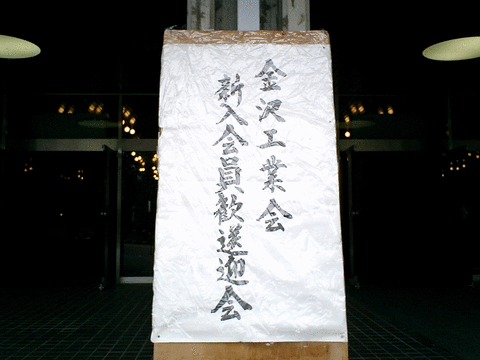 金沢工業会
新入会員歓送迎会